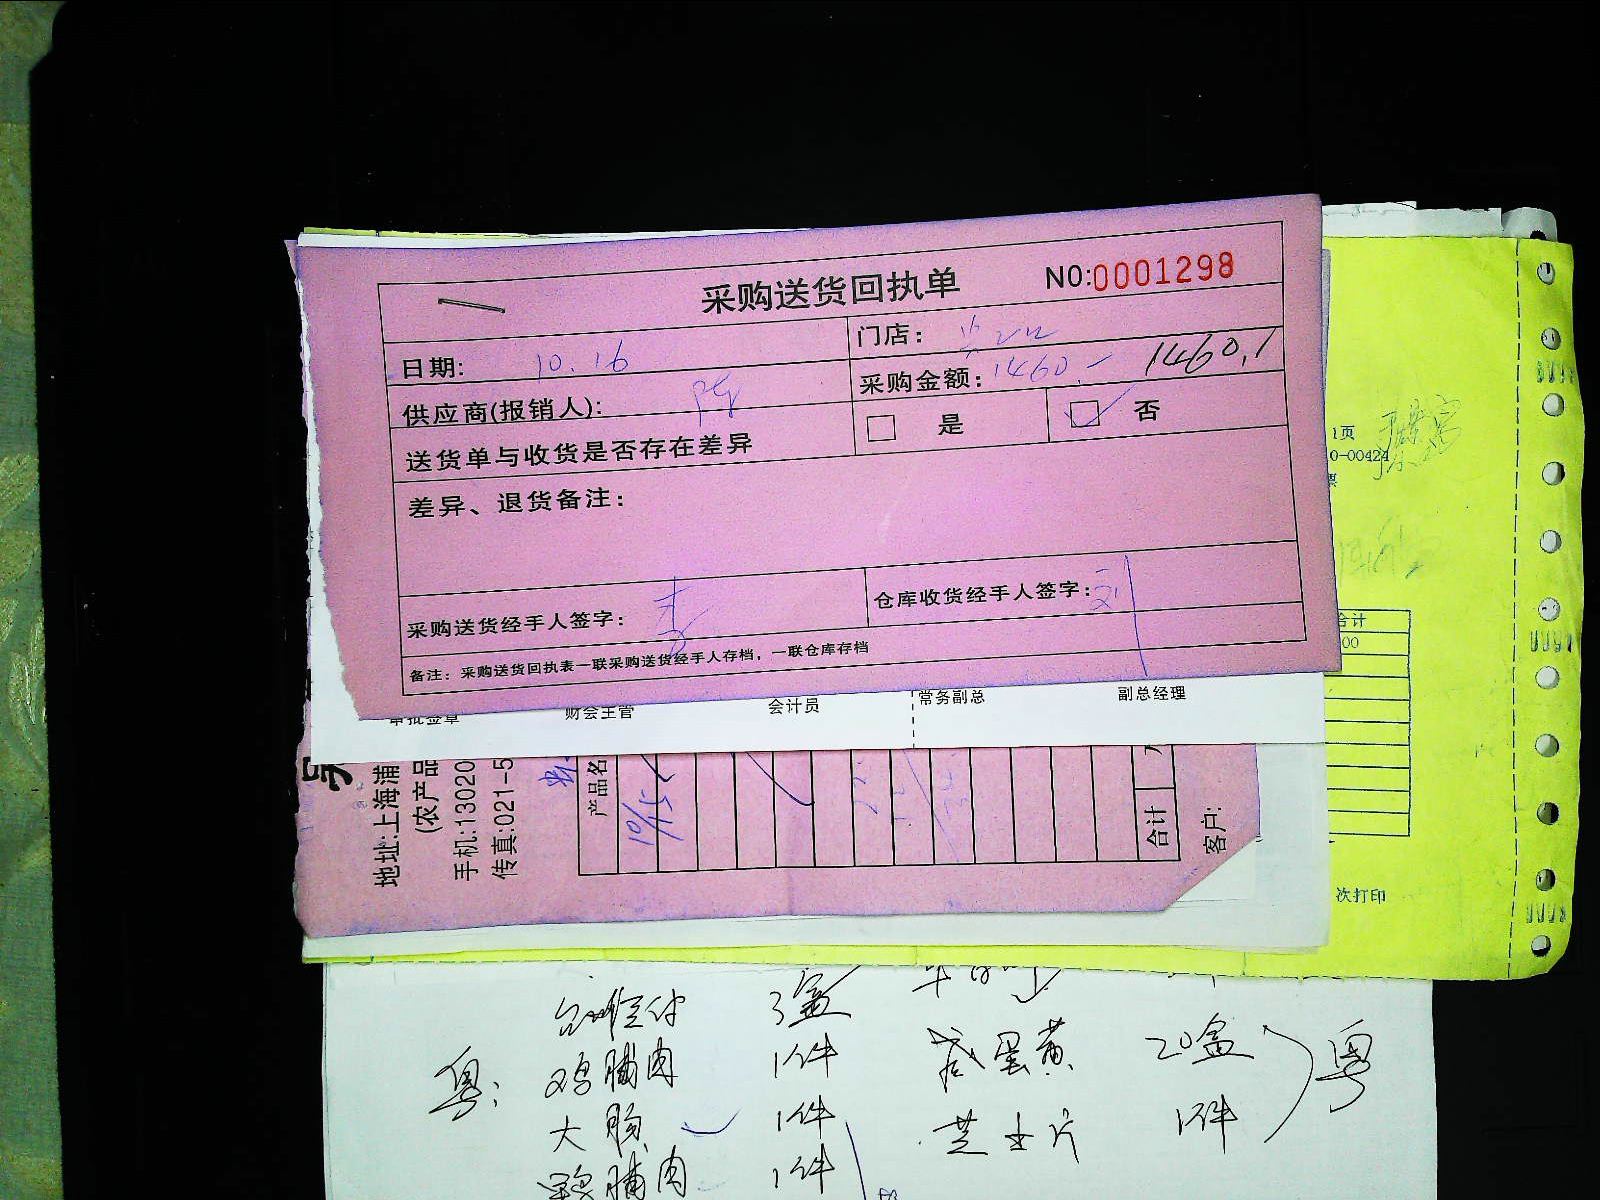 采购送货回执单 NO:0001298
日期: 10.16 门店:
供应商(报销人): 采购金额: 1460.- 1460.1
送货单与收货是否存在差异 □ 是 ☑ 否
差异、退货备注:
采购送货经手人签字: 李 仓库收货经手人签字: 刘
备注: 采购送货回执表一联采购送货经手人存档, 一联仓库存档
审批签章 财会主管 会计员 常务副总 副总经理
1页
0-00424
票
合计
00
次打印
地址:上海浦
(农产品
手机:13020
传真:021-5
产品名
10/15
合计
客户:
3盒
粤: 鸡脯肉 1件 咸蛋黄 20盒 粤
大肠 1件 芝士片 1件
脯肉 1件